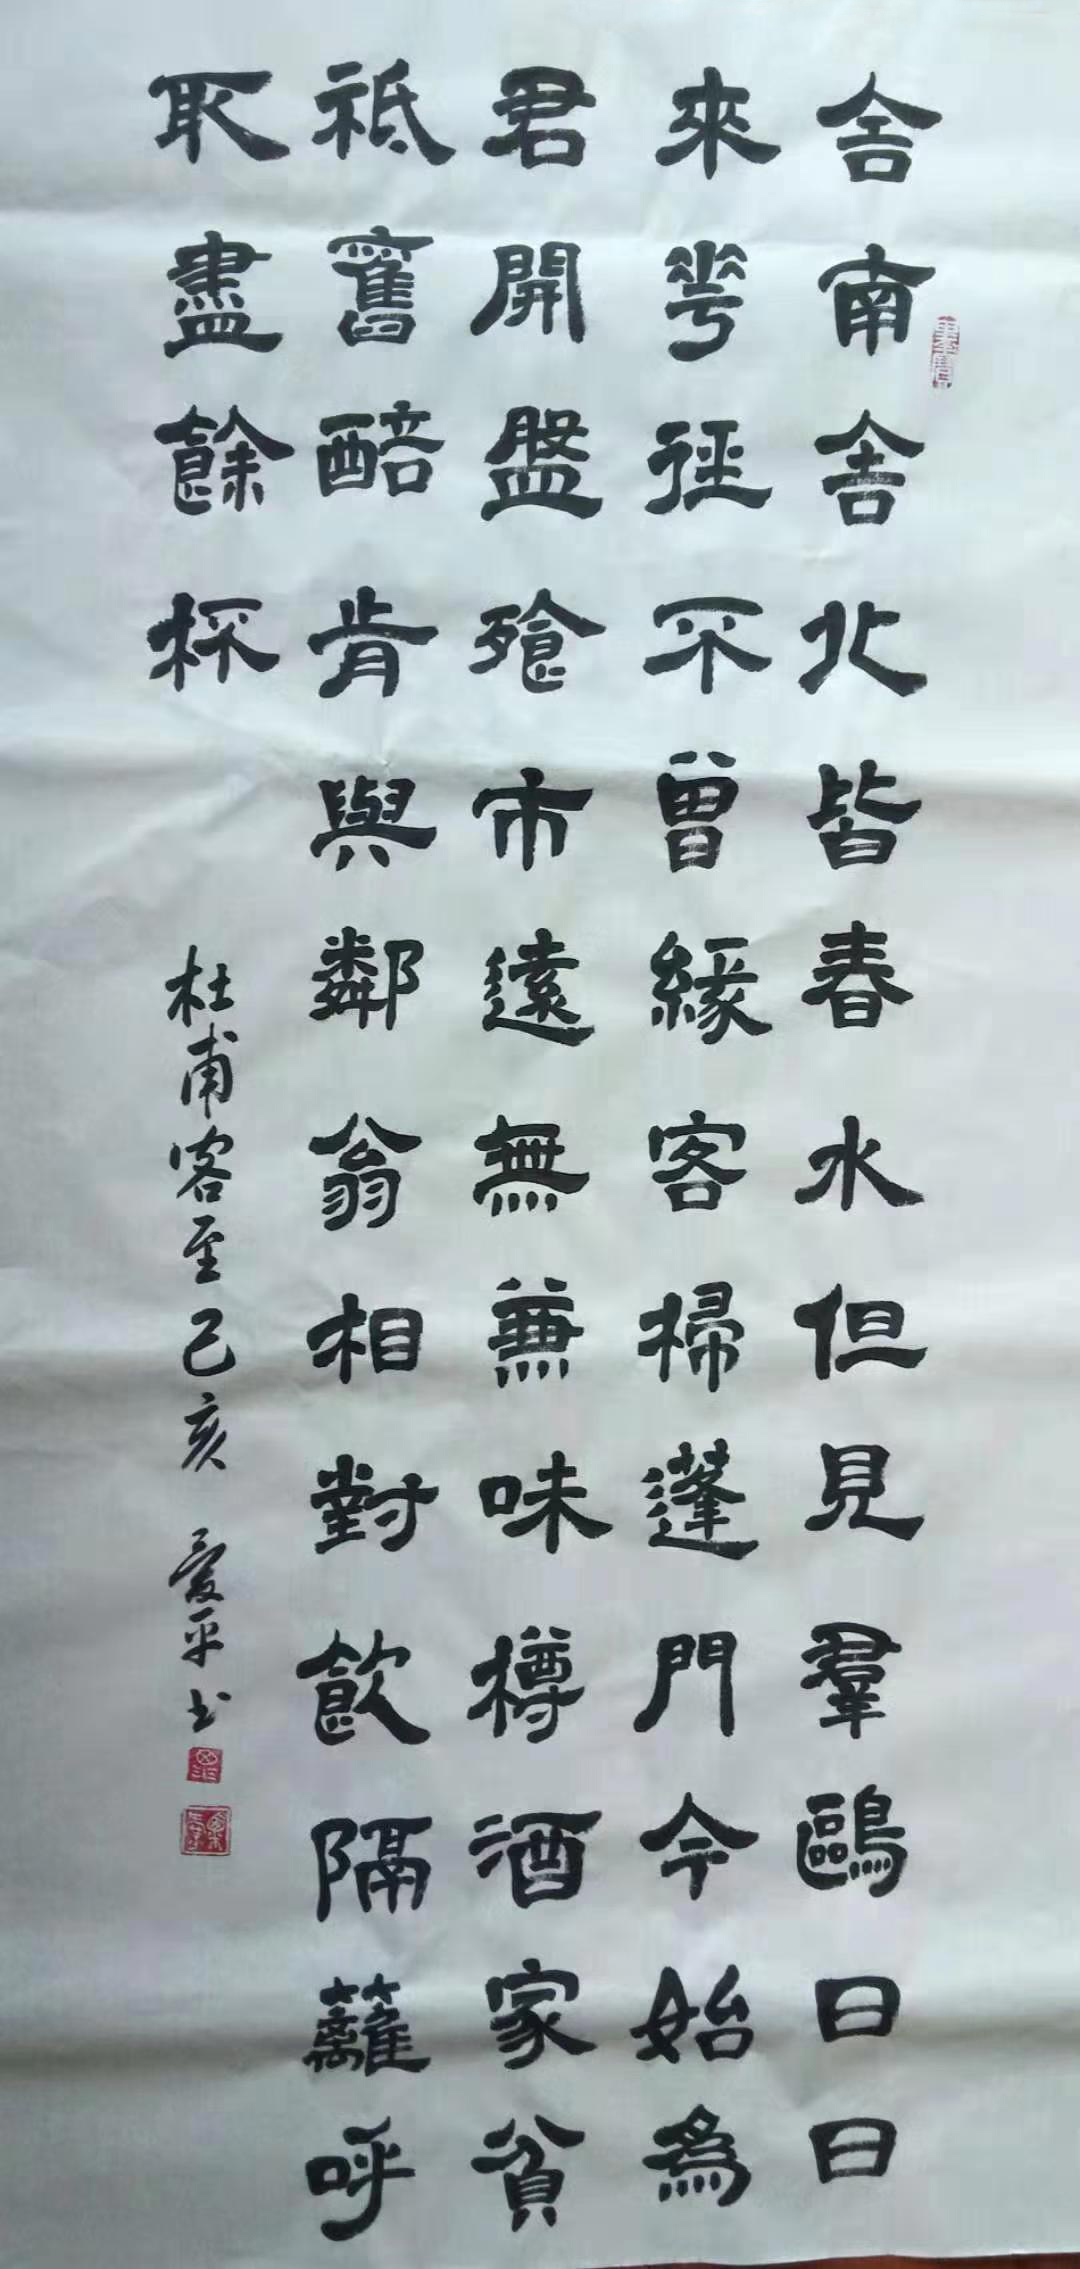 舍南舍北皆春水但見羣鷗日日
來花徑不曾緣客掃蓬門今始為
君開盤飱市遠無兼味樽酒家貧
祗舊醅肯與鄰翁相對飲隔籬呼
取盡餘杯
杜甫客至己亥 爱平书